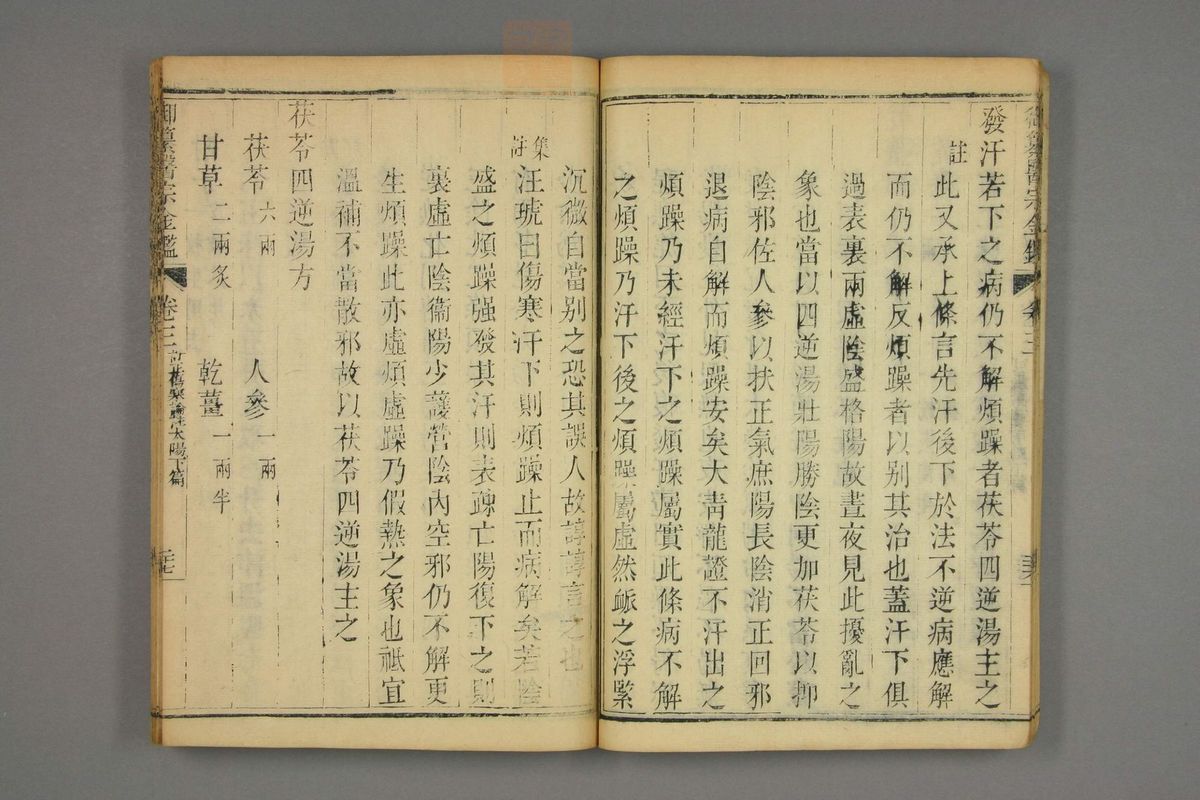 御纂醫宗金鑑 卷三
發汗若下之病仍不解煩躁者茯苓四逆湯主之
註
此又承上條言先汗後下於法不逆病應解
而仍不解反煩躁者以别其治也蓋汗下俱
過表裏兩虛陰盛格陽故晝夜見此擾亂之
象也當以四逆湯壯陽勝陰更加茯苓以抑
陰邪佐人參以扶正氣庶陽長陰消正回邪
退病自解而煩躁安矣大青龍證不汗出之
煩躁乃未經汗下之煩躁屬實此條病不解
之煩躁乃汗下後之煩躁屬虛然脈之浮緊
沉微自當别之恐其誤人故諄諄言之也
集註
汪琥曰傷寒汗下則煩躁止而病解矣若陰
盛之煩躁强發其汗則表疎亡陽復下之則
裏虛亡陰衞陽少護營陰內空邪仍不解更
生煩躁此亦虛煩虛躁乃假熱之象也祗宜
溫補不當散邪故以茯苓四逆湯主之
茯苓四逆湯方
茯苓六兩 人參一兩
甘草二兩炙 乾薑一兩半
御纂醫宗金鑑 卷三 訂傷寒論註太陽下篇